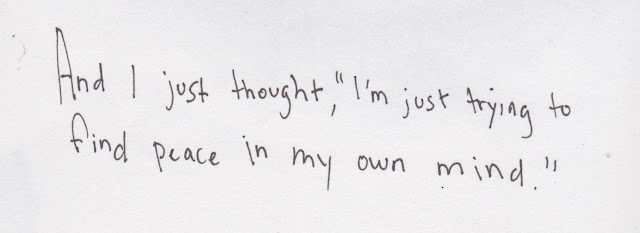 And I just thought, "I'm just trying to
find peace in my own mind."